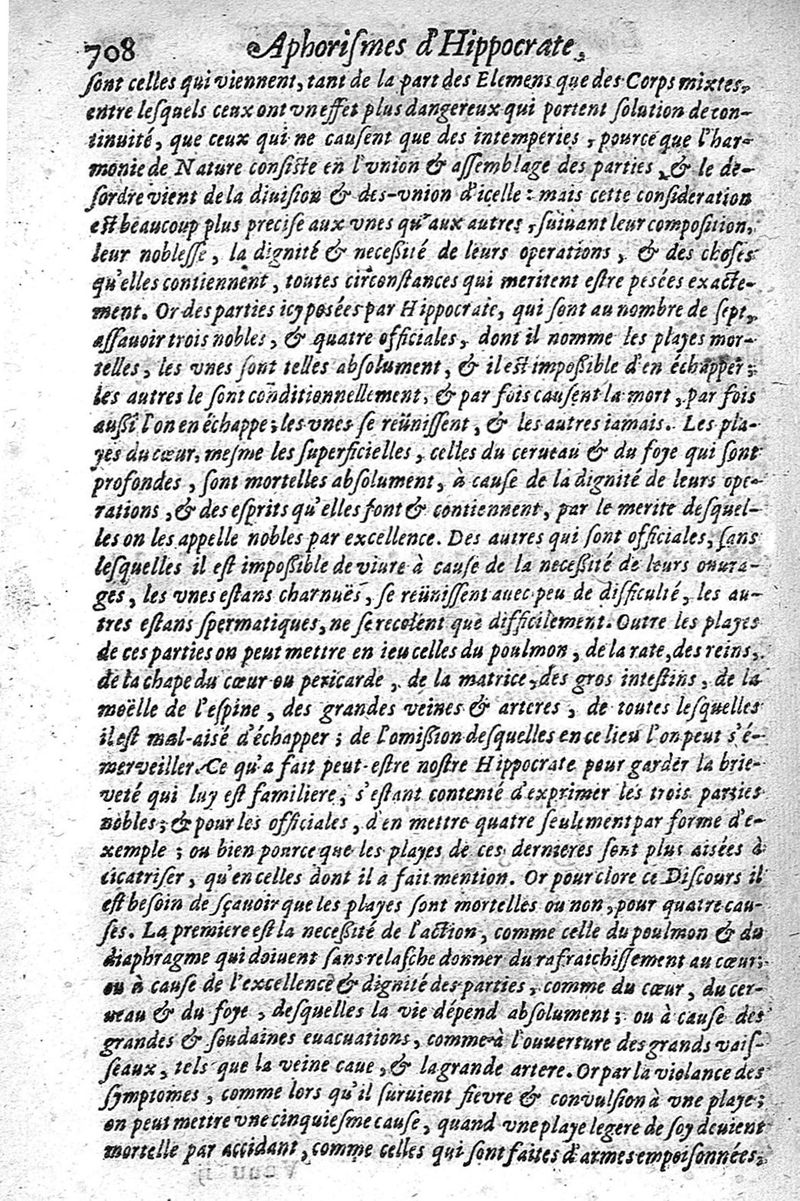 708 Aphoriſmes d'Hippocrate,
ſont celles qui viennent, tant de la part des Elemens que des Corps mixtes,
entre leſquels ceux ont vn effet plus dangereux qui portent ſolution de con-
tinuité, que ceux qui ne cauſent que des intemperies, pource que l'har-
monie de Nature conſiſte en l'vnion & aſſemblage des parties, & le de-
ſordre vient de la diuiſion & des-vnion d'icelle : mais cette conſideration
eſt beaucoup plus preciſe aux vnes qu'aux autres, ſuiuant leur compoſition,
leur nobleſſe, la dignité & neceßité de leurs operations, & des choſes
qu'elles contiennent, toutes circonſtances qui meritent eſtre peſées exacte-
ment. Or des parties icy poſées par Hippocrate, qui ſont au nombre de ſept,
aſſauoir trois nobles, & quatre officiales, dont il nomme les playes mor-
telles, les vnes ſont telles abſolument, & il eſt impoßible d'en échapper ;
les autres le ſont conditionnellement, & par fois cauſent la mort, par fois
außi l'on en échappe ; les vnes ſe reüniſſent, & les autres iamais. Les pla-
yes du cœur, meſme les ſuperficielles, celles du cerueau & du foye qui ſont
profondes, ſont mortelles abſolument, à cauſe de la dignité de leurs ope-
rations, & des eſprits qu'elles font & contiennent, par le merite deſquel-
les on les appelle nobles par excellence. Des autres qui ſont officiales, ſans
leſquelles il eſt impoßible de viure à cauſe de la neceßité de leurs ouura-
ges, les vnes eſtans charnuës, ſe reüniſſent auec peu de difficulté, les au-
tres eſtans ſpermatiques, ne ſe recolent que difficilement. Outre les playes
de ces parties on peut mettre en ieu celles du poulmon, de la rate, des reins,
de la chape du cœur ou pericarde, de la matrice, des gros inteſtins, de la
moëlle de l'eſpine, des grandes veines & arteres, de toutes leſquelles
il eſt mal-aisé d'échapper ; de l'omißion deſquelles en ce lieu l'on peut s'é-
merveiller. Ce qu'a fait peut-eſtre noſtre Hippocrate pour garder la brie-
veté qui luy eſt familiere, s'eſtant contenté d'exprimer les trois parties
nobles ; & pour les officiales, d'en mettre quatre ſeulement par forme d'e-
xemple ; ou bien pource que les playes de ces dernieres ſont plus aisées à
cicatriſer, qu'en celles dont il a fait mention. Or pour clore ce Diſcours il
eſt beſoin de ſçauoir que les playes ſont mortelles ou non, pour quatre cau-
ſes. La premiere eſt la neceßité de l'action, comme celle du poulmon & du
diaphragme qui doiuent ſans relaſche donner du rafraichiſſement au cœur ;
ou à cauſe de l'excellence & dignité des parties, comme du cœur, du cer-
ueau & du foye, deſquelles la vie dépend abſolument ; ou à cauſe des
grandes & ſoudaines euacuations, comme à l'ouuerture des grands vaiſ-
ſeaux, tels que la veine caue, & la grande artere. Or par la violance des
ſymptomes, comme lors qu'il ſuruient fievre & convulſion à vne playe ;
on peut mettre vne cinquieſme cauſe, quand vne playe legere de ſoy deuient
mortelle par accidant, comme celles qui ſont faites d'armes empoiſonnées,